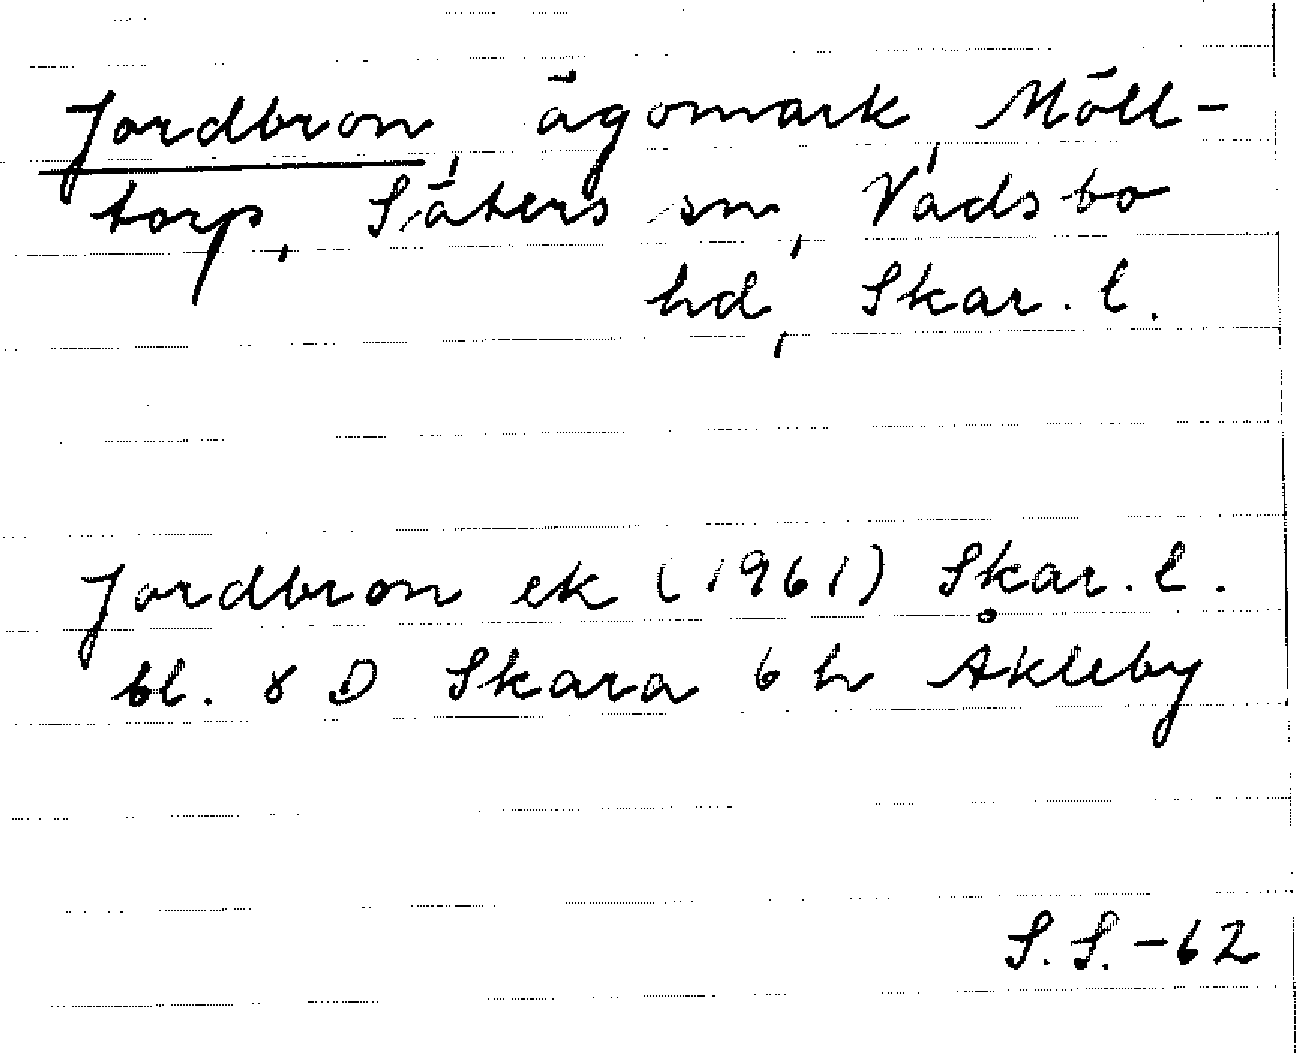 Jordbron, ägomark Möll-
torp, Säters sn, Vadsbo
hd, Skar. l.
Jordbron ek (1961) Skar. l.
bl. 8 D Skara 6 h Åkleby
S. S. -62